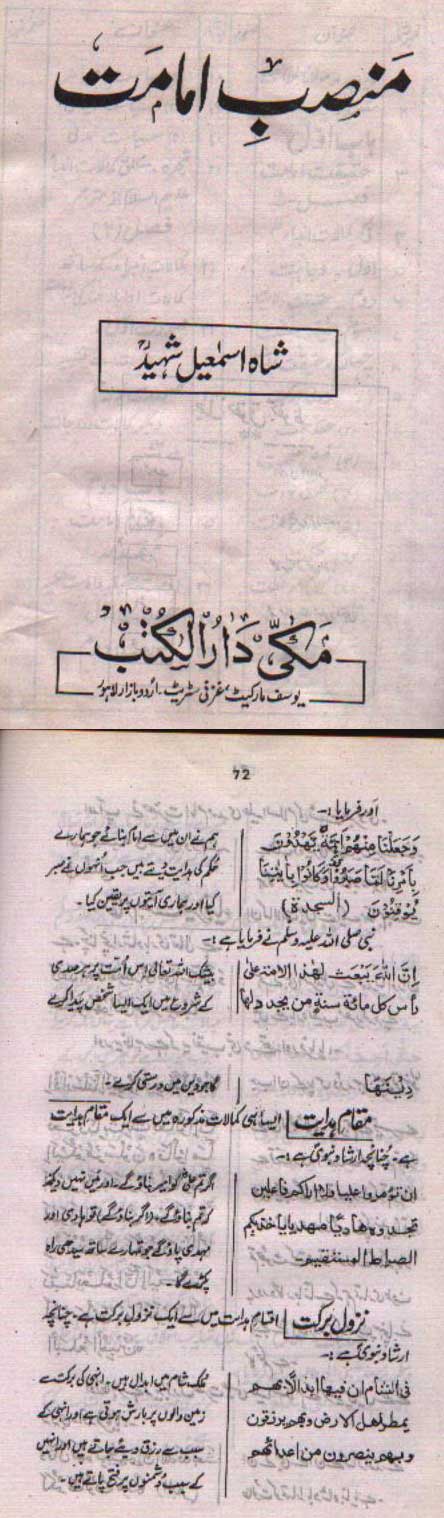 منصبِ امامت
شاہ اسمٰعیل شہیدؒ
مکّی دارُالکتُب
یوسف مارکیٹ، غزنی سٹریٹ۔ اردو بازار لاہور
72
اور فرمایا:۔
وَجَعَلْنَا مِنْهُمْ اَئِمَّةً يَّهْدُوْنَ
بِاَمْرِنَا لَمَّا صَبَرُوْا وَكَانُوْا بِاٰيٰتِنَا
يُوْقِنُوْنَ (السجدة)
ہم نے ان میں سے امام بنائے جو ہمارے
حکم کی ہدایت دیتے ہیں جب اُنہوں نے صبر
کیا اور ہماری آیتوں پر یقین کیا۔
نبی صلی اللہ علیہ وسلم نے فرمایا ہے:۔
اِنَّ اللهَ يَبْعَث لهٰذا الامة على
رأس كل مائة سنة من يجدد لها
دِيْنَهَا
بیشک اللہ تعالیٰ اس اُمت پر ہر صدی
کے شروع میں ایک ایسا شخص پیدا کرے
گا جو دین میں درستی کرے۔
مقامِ ہدایت ایسا ہی کمالات مذکورہ میں سے ایک مقامِ ہدایت
ہے۔ چنانچہ ارشاد نبویؐ ہے:۔
ان تؤمروا عليا ولا اراكم فاعلين
تجدوه هاديًا مهديا ياخذ بكم
الصراط المستقيم۔
اگر تم علیؓ کو امیر بناؤ گے۔ اور میں نہیں دیکھتا
کہ تم بناؤ گے۔ (اگر بناؤ گے) تو ہادی اور
مہدی پاؤ گے جو تمہارے ساتھ سیدھی راہ
پکڑے گا۔
نزولِ برکت اقسام ہدایت میں سے ایک نزول برکت ہے۔ چنانچہ
ارشاد نبویؐ ہے:۔
فى الشام ان فيها ابدالا بهم
يمطر اهل الارض وبهم يرزقون
وبهم ينصرون من اعدائهم
ملک شام میں ابدال ہیں۔ انہی کی برکت سے
زمین والوں پر بارش ہوتی ہے اور انہی کے
سبب سے رزق دیئے جاتے ہیں اور انہیں
کے سبب دُشمنوں پر فتح پاتے ہیں۔